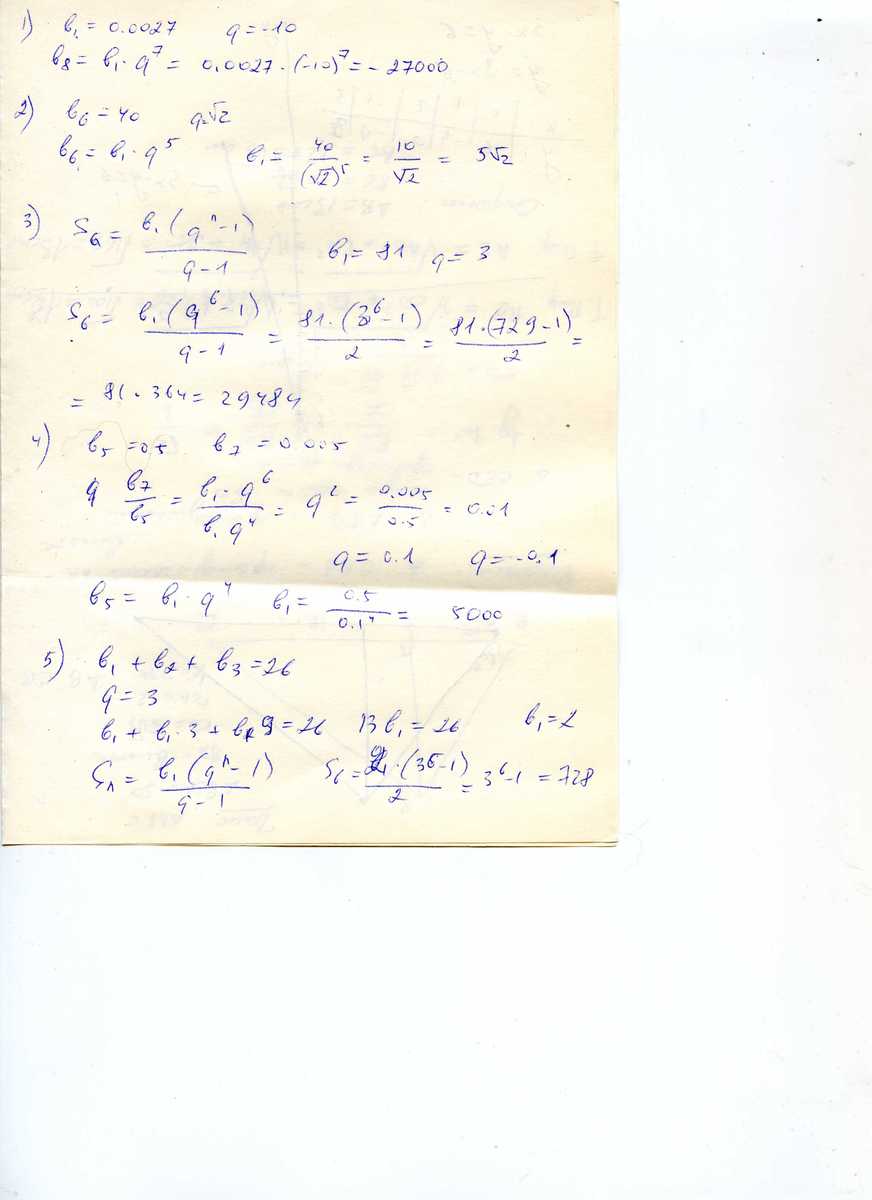 1) b₁ = 0.0027 q = -10
b₈ = b₁ · q⁷ = 0.0027 · (-10)⁷ = -27000
2) b₆ = 40 q=√2
b₆ = b₁ · q⁵ b₁ = 40/(√2)⁵ = 10/√2 = 5√2
3) S₆ = b₁(qⁿ-1)/(q-1) b₁ = 81 q = 3
S₆ = b₁(q⁶-1)/(q-1) = 81·(3⁶-1)/2 = 81·(729-1)/2 =
= 81 · 364 = 29484
4) b₅ = 0.5 b₇ = 0.005
q b₇/b₅ = b₁·q⁶/b₁q⁴ = q² = 0.005/0.5 = 0.01
q = 0.1 q = -0.1
b₅ = b₁·q⁴ b₁ = 0.5/0.1⁴ = 5000
5) b₁ + b₂ + b₃ = 26
q = 3
b₁ + b₁·3 + b₁·9 = 26 13b₁ = 26 b₁ = 2
Sₙ = b₁(qⁿ-1)/(q-1) S₆ = 2·(3⁶-1)/2 = 3⁶-1 = 728